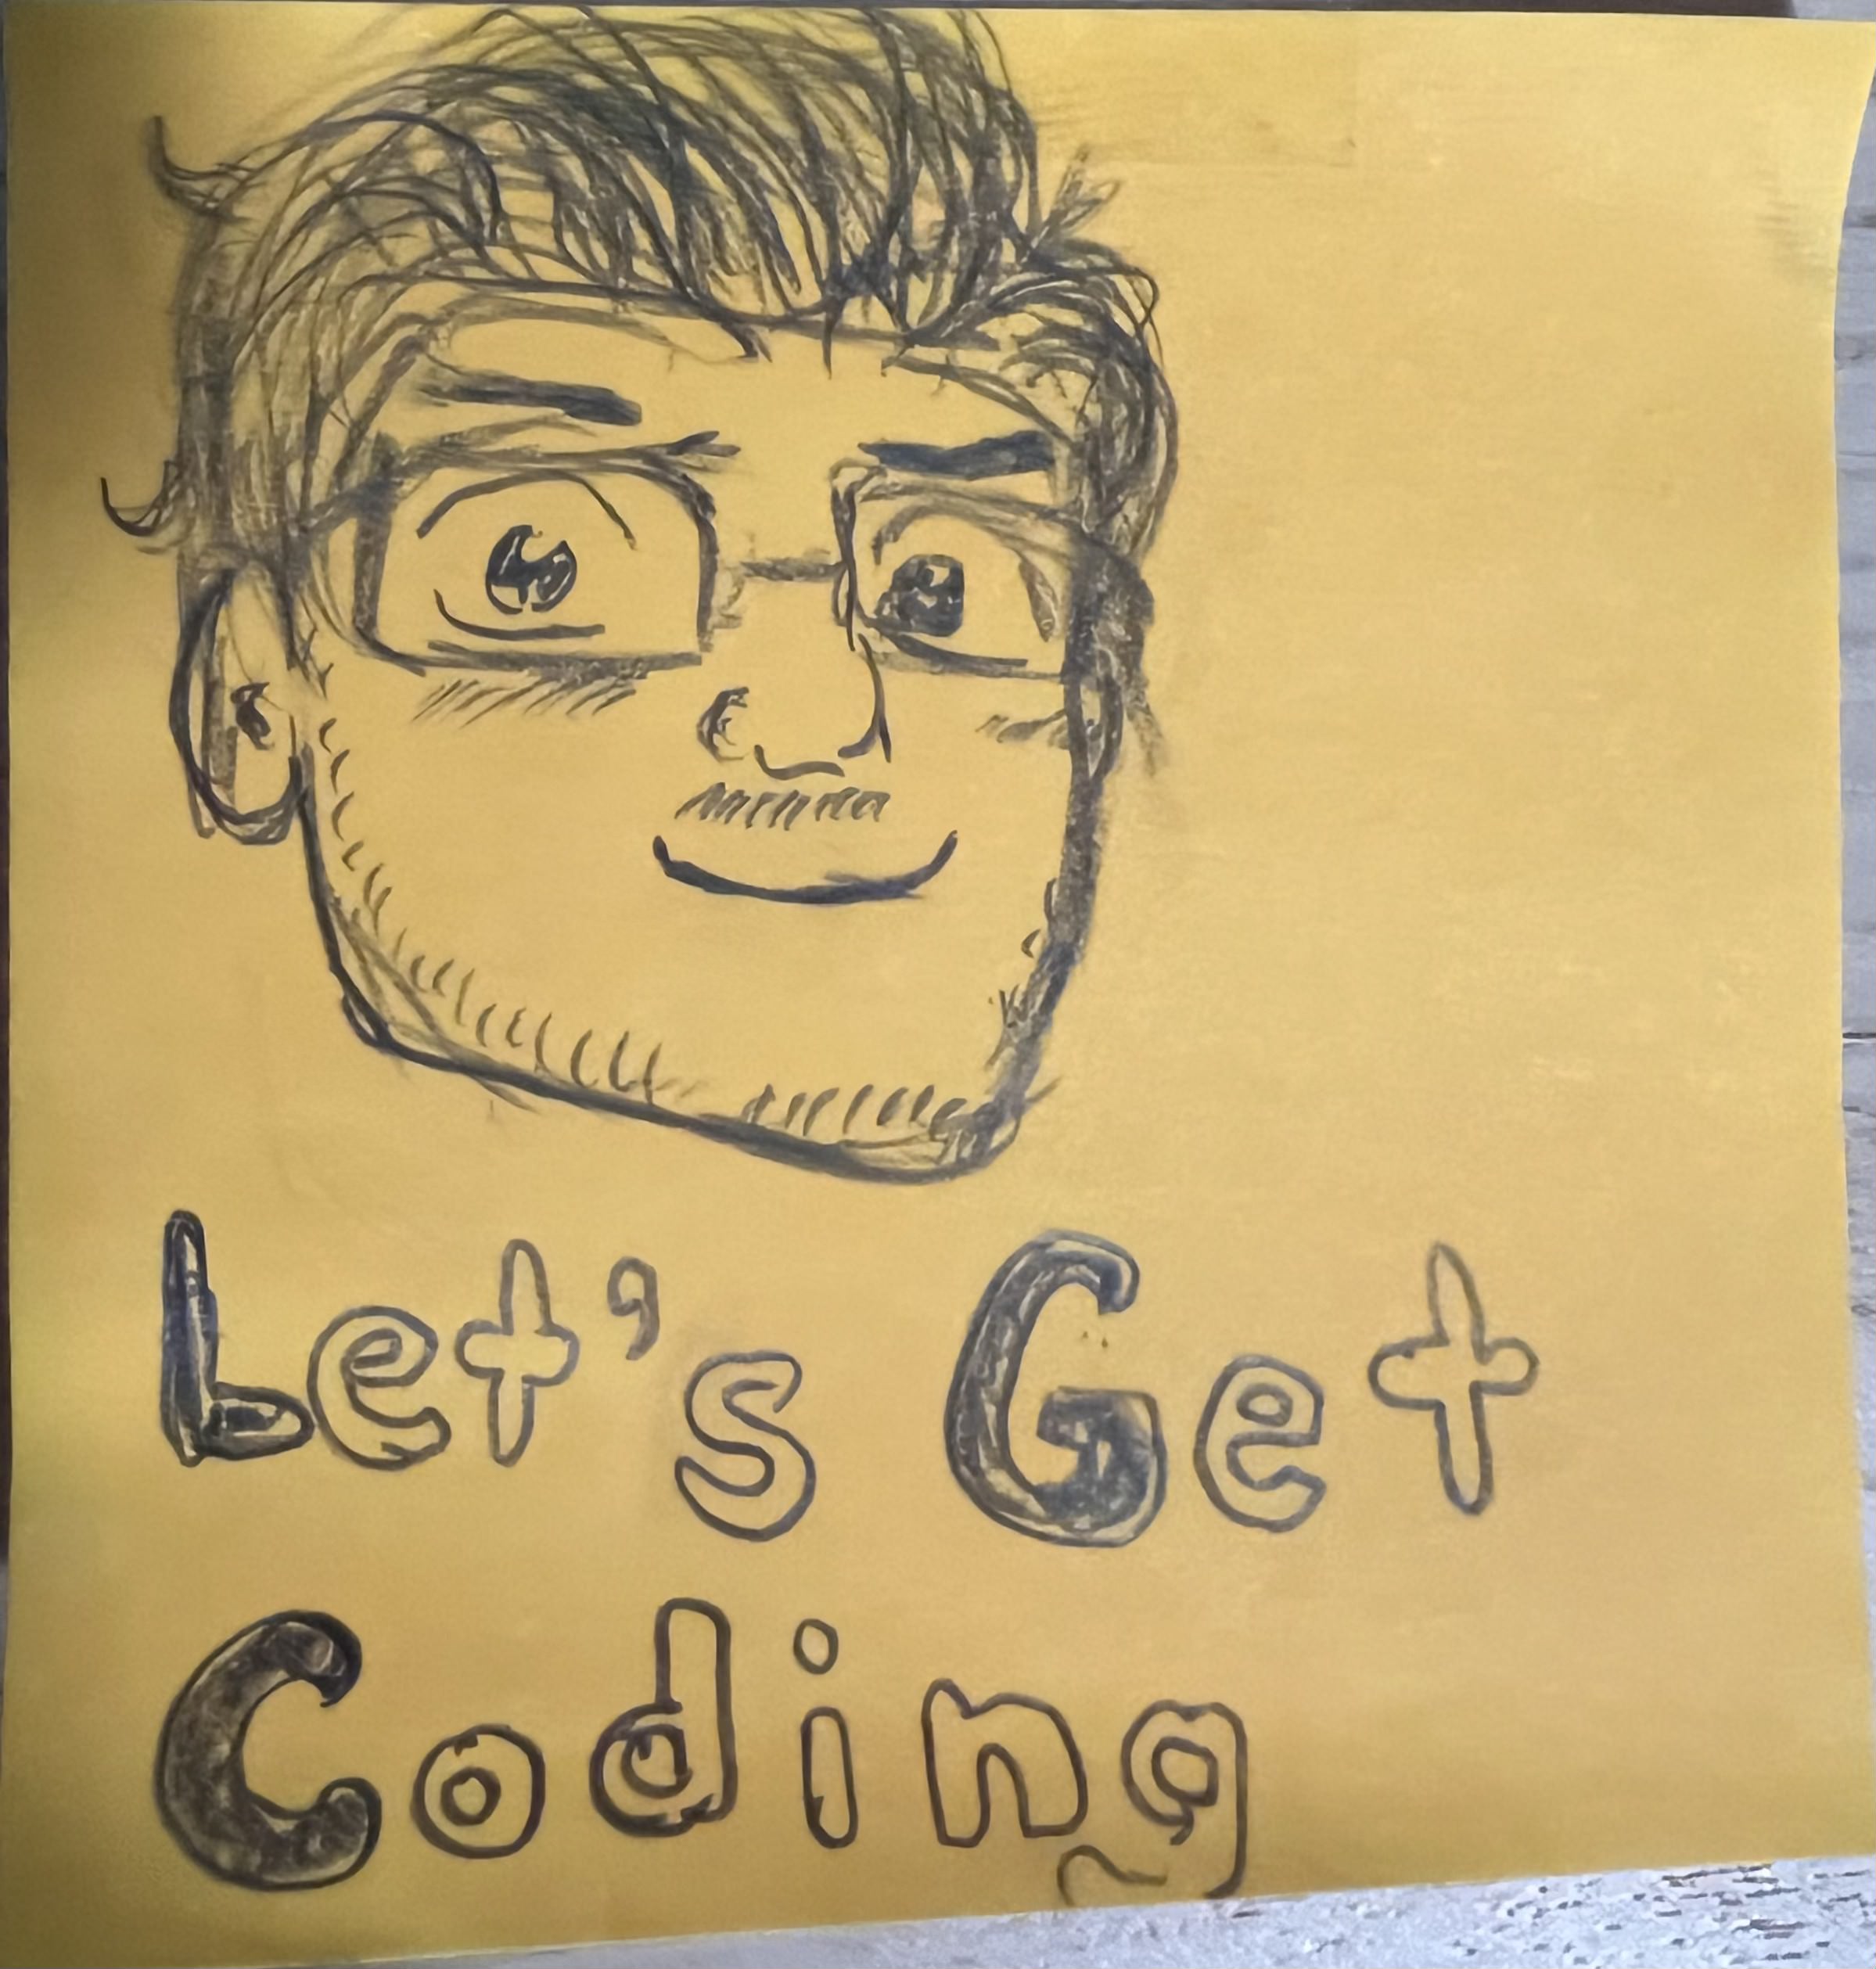 Let's Get
Coding